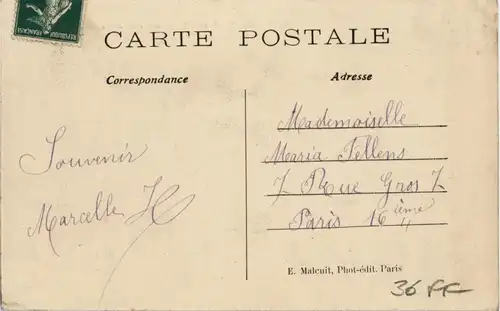 CARTE POSTALE
Correspondance
Adresse
Souvenir
Marcelle H
Mademoiselle
Maria Fellens
7 Rue Gros 7
Paris 16 ième
E. Malcuit, Phot-édit. Paris
36 FF